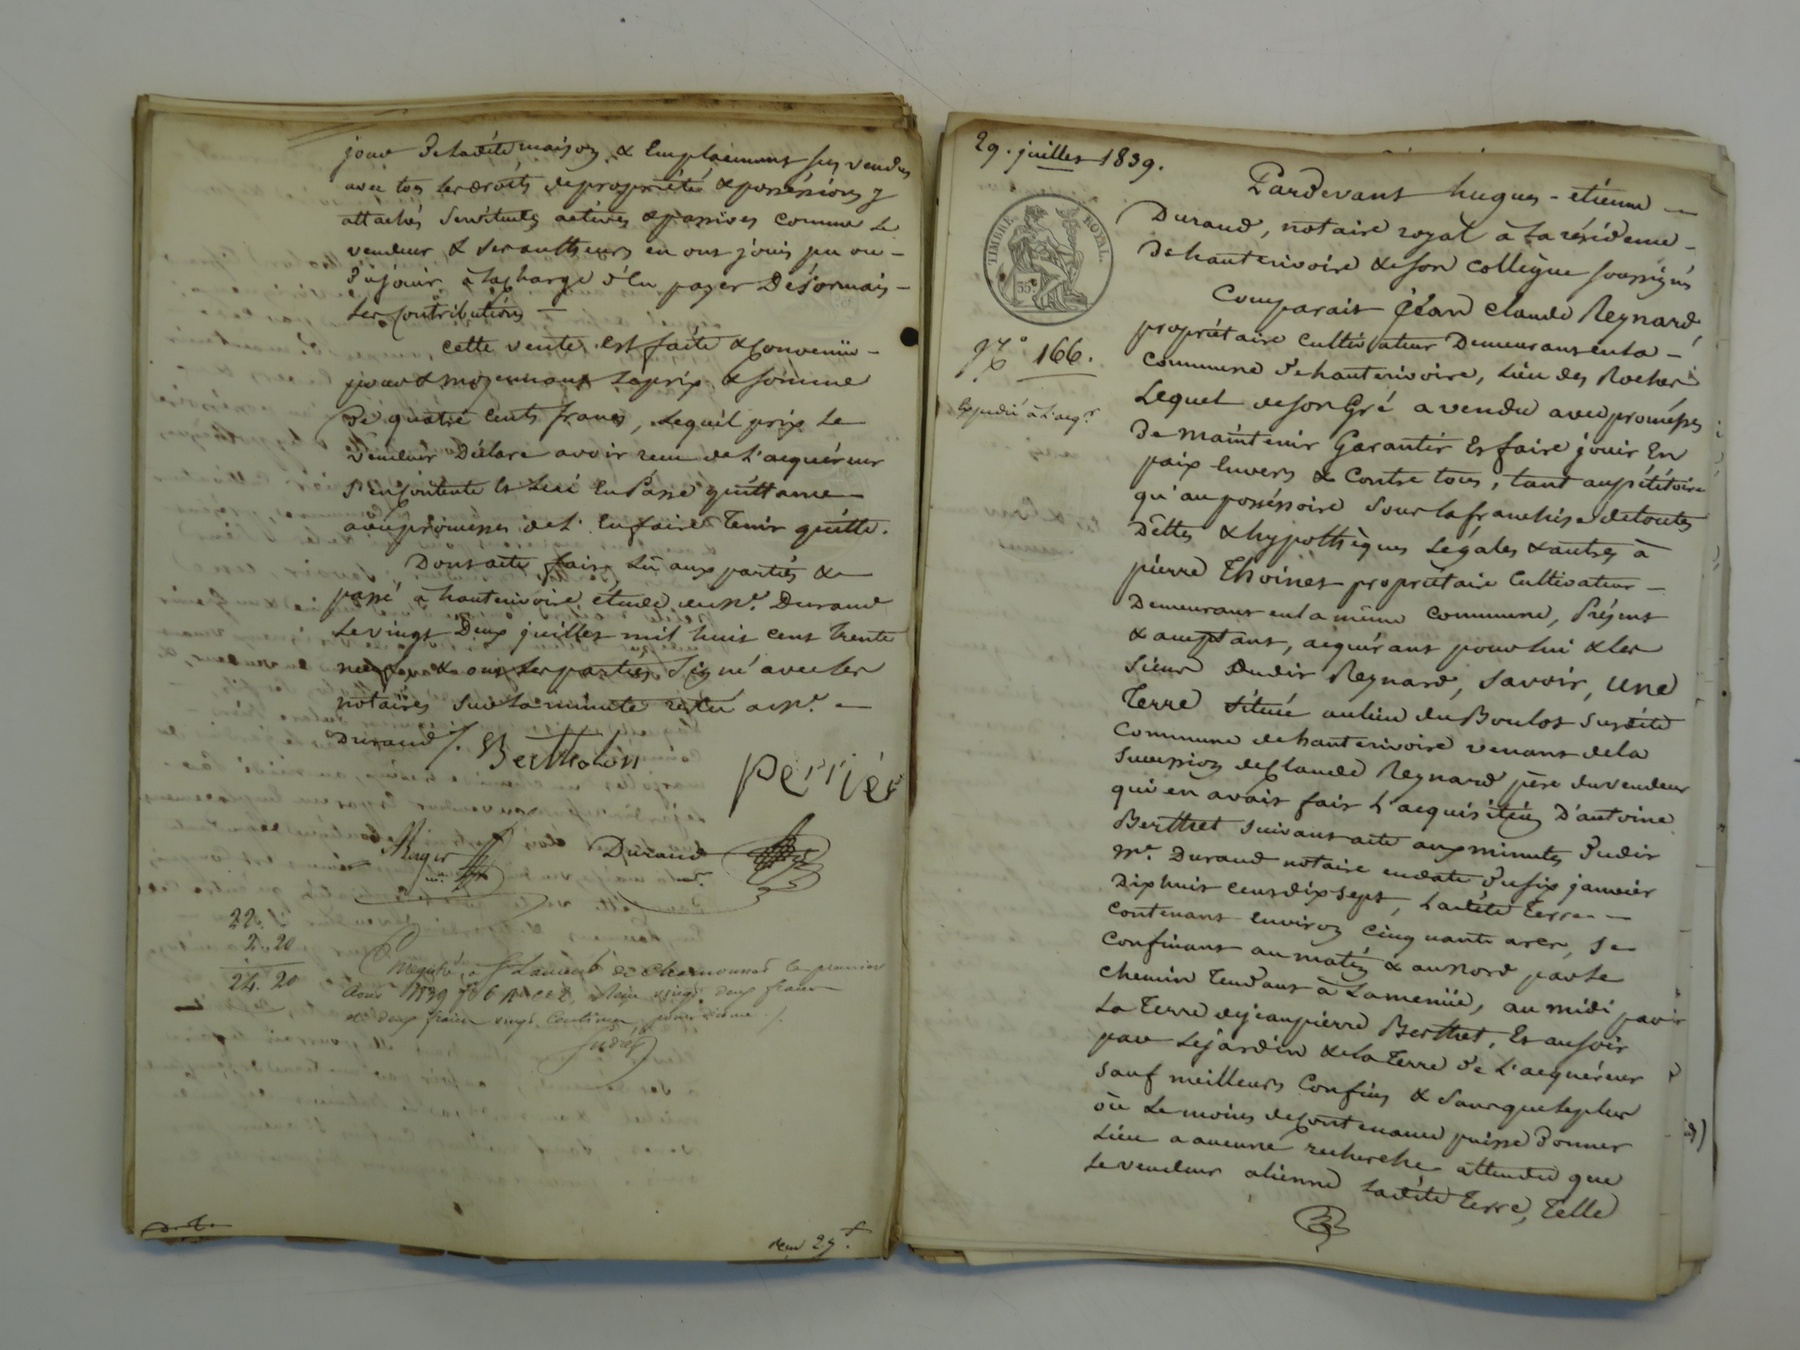 jouir de ladite maison & Emplacement sus vendus
avec tous les droits de propriétés & possessions y
attachés servitudes actives & passives comme le
vendeur & ses autheurs en ont joui pu ou
d'û jouir à la charge d'en payer Désormais
les Contributions
cette vente est faite & Convenüe
pour & moyennant le prix & somme
De quatre cents francs, Lequel prix Le
vendeur Déclare avoir reçu de l'acquéreur
s'en Contente et lui En Passe quittance
avec promesses de l'en faire Tenir quitte.
Dont acte fait Lû aux parties &
passé à hauterivoire étude de Me. Durand
Le vingt Deux juillet mil huit cent trente
neuf & ont les parties Signé avec les
notaires sur la minute resté a Me.
Durand /.
Bertholon
perrier
Roger
Durand
22.
2. 20
24. 20
Enregistré à St Laurent de Chamousset le premier
Août 1839 Reçu vingt deux francs
et deux francs vingt Centimes
29. juillet 1839.
TIMBRE ROYAL.
35c
No 166.
Expédié à l'acqr.
Pardevant hugues-étienne
Durand, notaire royal à la résidence
De hauterivoire & son collègue soussignés
Comparait Jéan claude Reynard
propriétaire Cultivateur Demeurant en la
Commune de hauterivoire, Lieu des Rocher
Lequel de son Gré a vendu avec promesses
De maintenir Garantir et faire jouir En
paix Envers & Contre tous, tant au pétitoire
qu'au posséssoire sous la franchise de toutes
Dettes & hypothèques Légales & autres à
pierre Thoinet propriétaire Cultivateur
Demeurant en la même Commune, Présent
& acceptant, acquérant pour lui & les
siens Dudit Reynard, savoir, Une
Terre située au lieu du Boulot susdite
Commune de hauterivoire venant de la
Succession de Claude Reynard père du vendeur
qui en avait fait l'acquisition D'antoine
Berthet suivant acte aux minutes Dudit
Me. Durand notaire en date Du six janvier
Dix huit cent dix sept, Ladite Terre
Contenant Environ Cinquante ares, se
Confinant au matin & au Nord par le
chemin Tendant à Lamenüe, au midi par
La Terre de jean pierre Berthet, Et au soir
par Le jardin & la Terre de l'acquéreur
sauf meilleurs Confins & sans que le plus
ou Le moins de Contenance puisse Donner
Lieu a aucune recherche attendu que
Le vendeur aliénne Ladite Terre, Telle